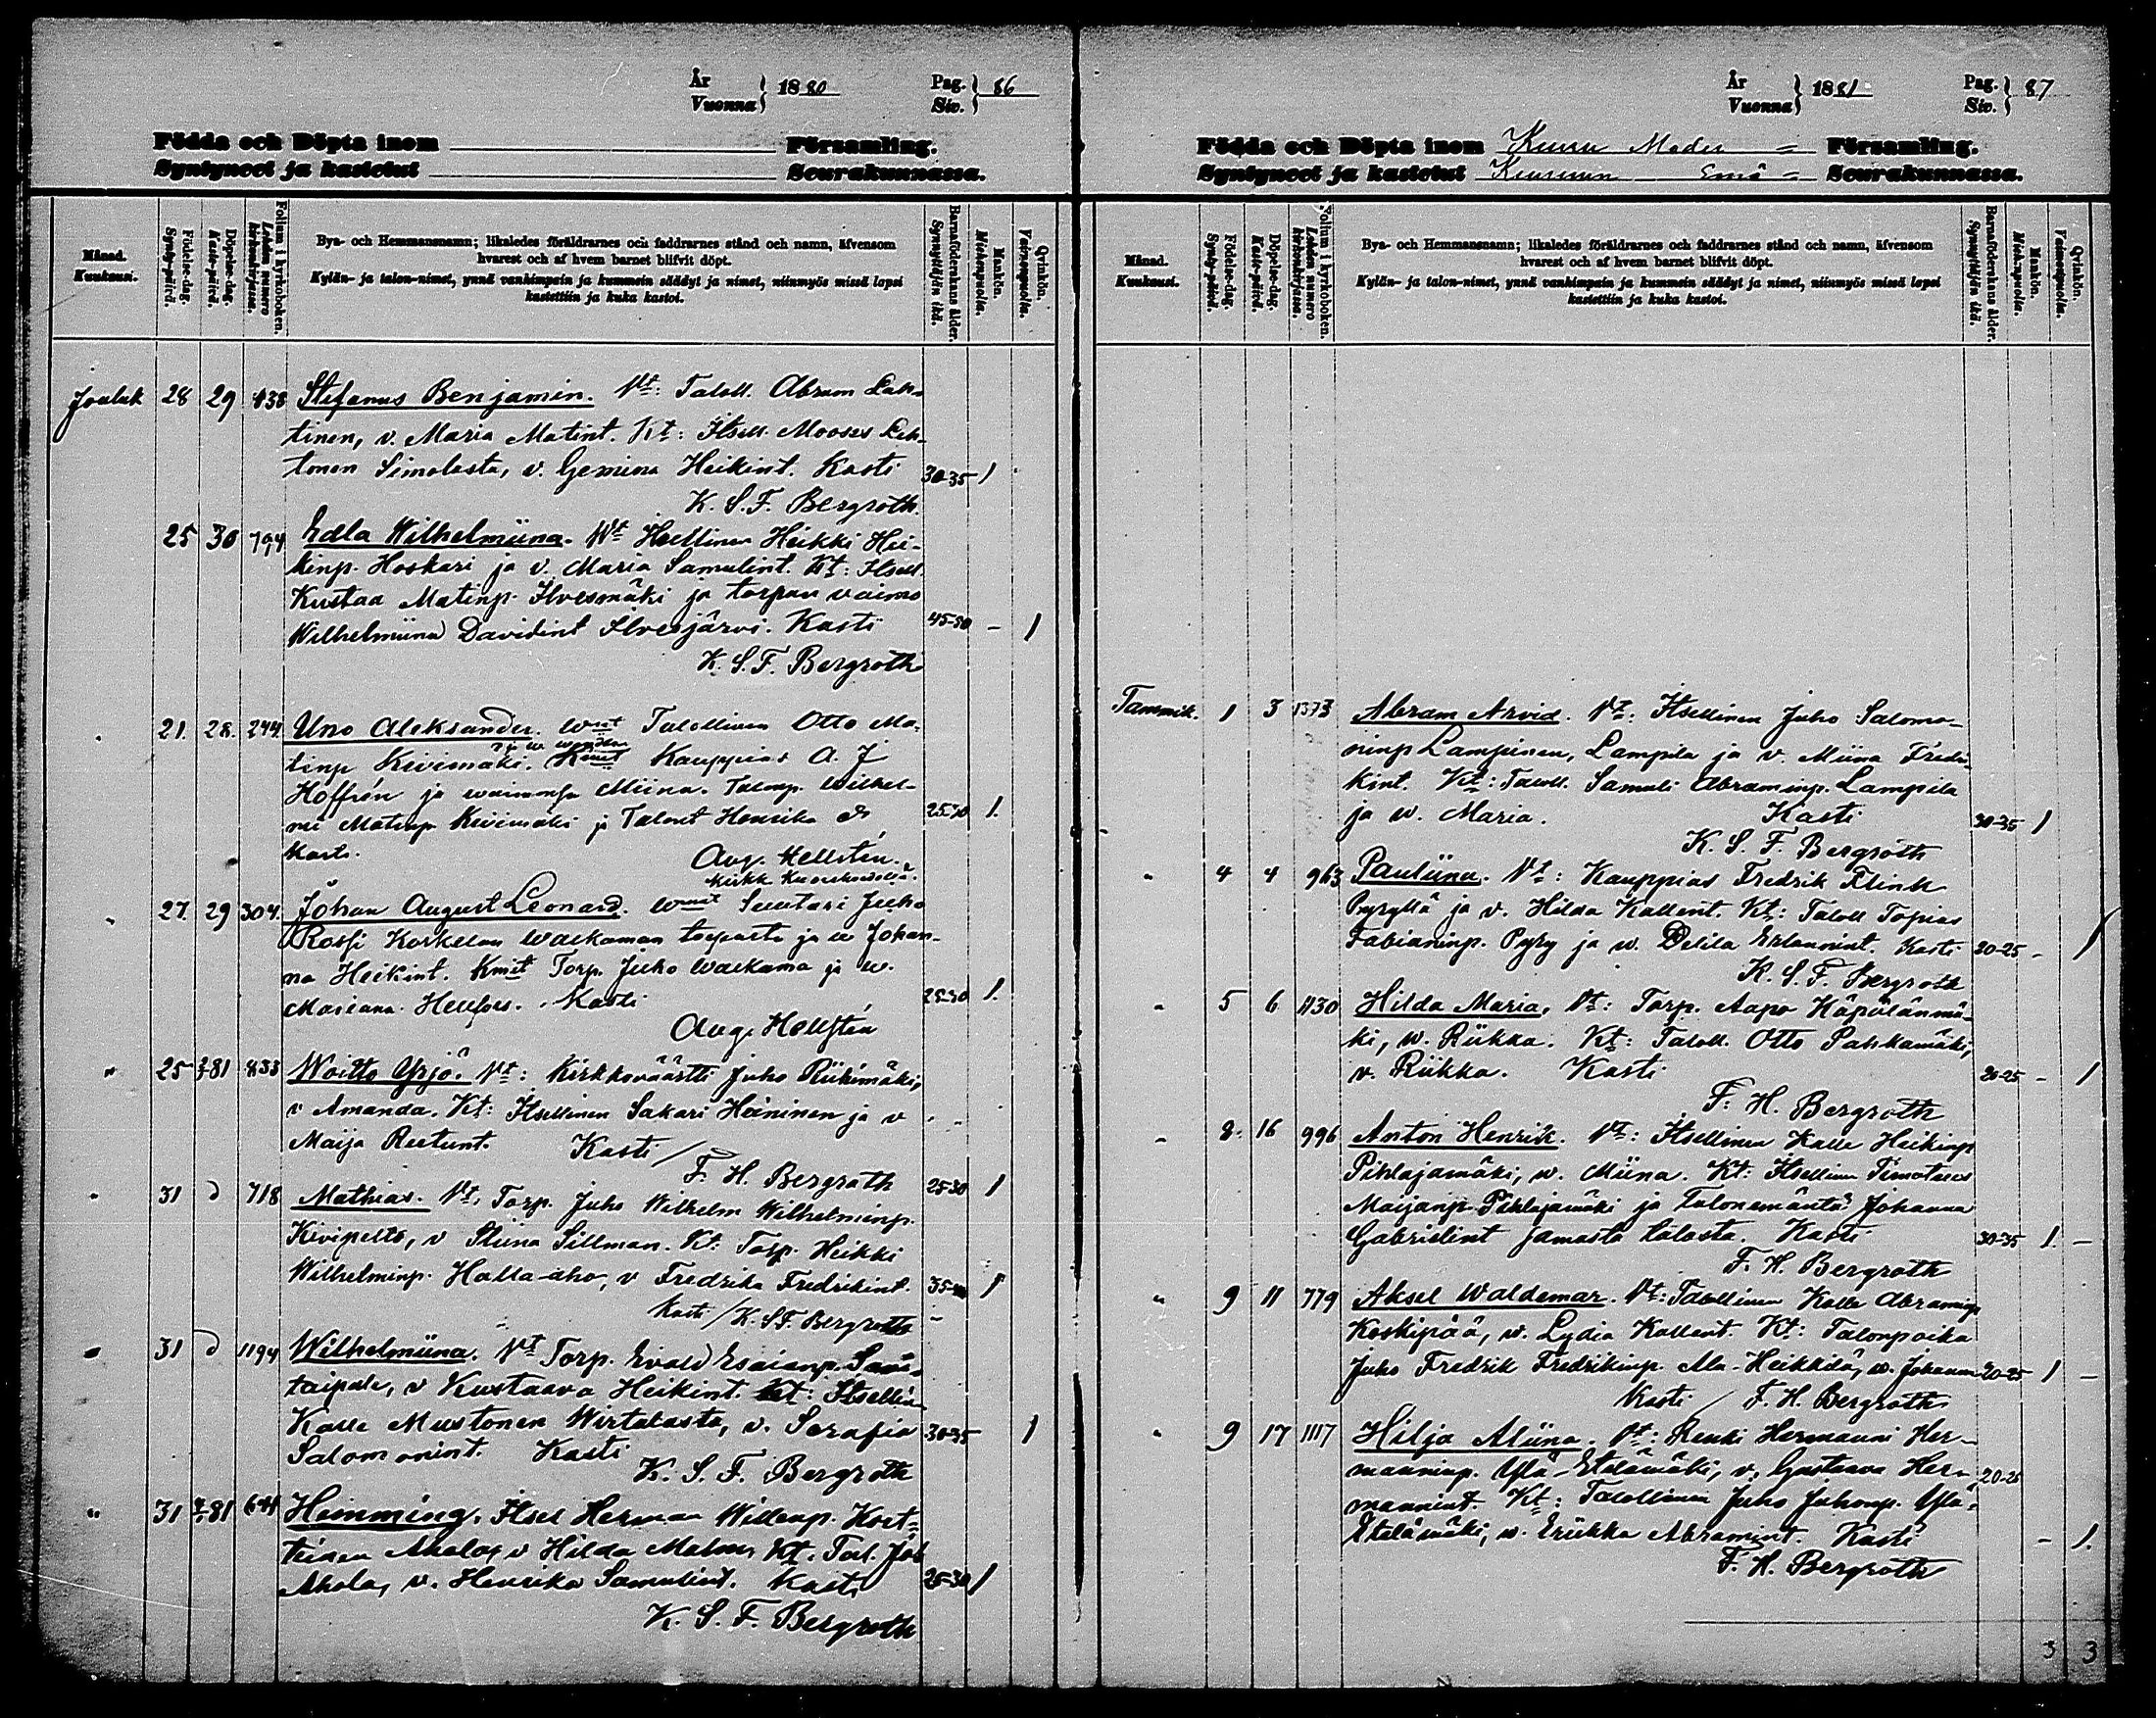 År
Vuonna } 1880
Pag.
Siv. } 86
Födda och Döpta inom Församling.
Syntyneet ja kastetut Seurakunnassa.
Månad.
Kuukausi.
Födelse-dag.
Synty-päivä.
Döpelse-dag.
Kaste-päivä.
Folium i kyrkoboken.
Lehden numero kirkonkirjassa.
Bya- och Hemmansnamn; likaledes föräldrarnes och faddrarnes stånd och namn, äfvensom
hvarest och af hvem barnet blifvit döpt.
Kylän- ja talon-nimet, ynnä vanhimpain ja kummein säädyt ja nimet, niinmyös missä lapsi
kastettiin ja kuka kastoi.
Barnaföderskans ålder.
Synnyttäjän ikä.
Mankön.
Miehenpuolia.
Qvinkön.
Vaimonpuolia.
Jouluk 28 29 438 Stefanus Benjamin. Vt: Taloll. Abram Leh-
tinen, v. Maria Matint. Kt: Itsell. Mooses Leh-
tonen Simolasta, v. Gemina Heikint. Kasti 30-35 1
K. S. F. Bergroth.
25 30 794 Edla Wilhelmiina. Vt Itsellinen Heikki Hei-
kinp. Hoskari ja v. Maria Samulint. Kt: Itsell.
Kustaa Matinp. Ilvesmäki ja torpan vaimo
Wilhelmiina Davidint Ilvesjärvi. Kasti 45-50 - 1
K. S. F. Bergroth
21. 28. 244. Uno Aleksander. Wmt Talollinen Otto Ma-
tinp Kivimäki. Kmit Kauppias A. J
Hoffrén ja waimonsa Miina. Talonp. Wilhel-
mi Matinp Kivimäki ja Talont Henrika 25-30 1.
Kasti. Aug. Hellstén.
27. 29 304. Johan August Leonard. Wmit Suutari Juho
Rossi Korkelan Walkaman torpasta ja w Johan-
na Heikint. Kmit Torp. Juho Walkama ja w.
Mariana. Kasti 25-30 1.
Aug. Hellstén
" 25 2/1 81 833 Woitto Yrjö. Vt: Kirkkoväärtti Juho Riihimäki,
v Amanda. Kt: Itsellinen Sakari Heininen ja v
Maija Reetunt. Kasti /
F. H. Bergroth 25-30 1
" 31 d 718 Mathias. Vt. Torp. Juho Wilhelm Wilhelminp.
Kivipelto, v Stiina Sillman. Kt: Torp. Heikki
Wilhelminp. Halla-aho, v Fredrika Fredrikint. 35-40 1
Kasti / K. S. F. Bergroth
" 31 d 1194 Wilhelmiina. Vt Torp. Evald Esaianp. Savi-
taipale, v Kustaava Heikint. Kt: Itsellin
Kalle Mustonen Wirtalasta, v. Serafia 30-35 1
Salomonint. Kasti
K. S. F. Bergroth
" 31 81 641 Hemming. Itsel Herman Willenp. Kort-
teinen Ahola, v Hilda Malm, Kt. Tal. Job
Ahola, v. Henrika Samulint. Kasti 25-30 1
K. S. F. Bergroth
År
Vuonna } 1881
Pag.
Siv. } 87
Födda och Döpta inom Keuru Moder = Församling.
Syntyneet ja kastetut Keuruun Emä = Seurakunnassa.
Månad.
Kuukausi.
Födelse-dag.
Synty-päivä.
Döpelse-dag.
Kaste-päivä.
Folium i kyrkoboken.
Lehden numero kirkonkirjassa.
Bya- och Hemmansnamn; likaledes föräldrarnes och faddrarnes stånd och namn, äfvensom
hvarest och af hvem barnet blifvit döpt.
Kylän- ja talon-nimet, ynnä vanhimpain ja kummein säädyt ja nimet, niinmyös missä lapsi
kastettiin ja kuka kastoi.
Barnaföderskans ålder.
Synnyttäjän ikä.
Mankön.
Miehenpuolia.
Qvinkön.
Vaimonpuolia.
Tammik. 1 3 1373 Abram Arvid. Vt: Itsellinen Juho Salomo-
ninp Lampinen, Lampila ja v. Miina Fredri-
kint. Kt: Taloll. Samuli Abraminp. Lampila
ja w. Maria. Kasti 30-35 1
K. S. F. Bergroth
" 4 4 963 Pauliina. Vt: Kauppias Fredrik Flink
Pyryllä ja v. Hilda Kallent. Kt: Taloll Topias
Fabianinp. Pyry ja w. Delila Erlannint. Kasti 20-25 - 1
K. S. F. Bergroth
" 5 6 1130 Hilda Maria. Vt: Torp. Aapo Käpälänmä-
ki, w. Riikka. Kt: Taloll. Otto Pahkamäki,
v. Riikka. Kasti 20-25 - 1
F. H. Bergroth
" 8. 16 996 Anton Henrik. Vt: Itsellinen Kalle Heikinp
Pihlajamäki, w. Miina. Kt: Itsellinen Timoteus
Maijanp. Pihlajamäki ja talonemäntä Johanna
Gabrielint samasta talosta. Kasti 30-35 1. -
F. H. Bergroth
" 9 11 779 Aksel Waldemar. Vt: Talollinen Kalle Abraminp
Koskipää, w. Lydia Kallent. Kt: Talonpoika
Juho Fredrik Fredrikinp. Ala-Heikkilä, w. Johanna 20-25 1 -
Kasti / F. H. Bergroth
" 9 17 1117 Hilja Aliina. Vt: Renki Hermanni Her-
manninp. Ylä-Etelämäki, v. Gustaava Her- 20-25
mannint. Kt: Talollinen Juho Juhonp. Ylä-
Etelämäki, w. Eriikka Abramint. Kasti - 1.
F. H. Bergroth
3 3